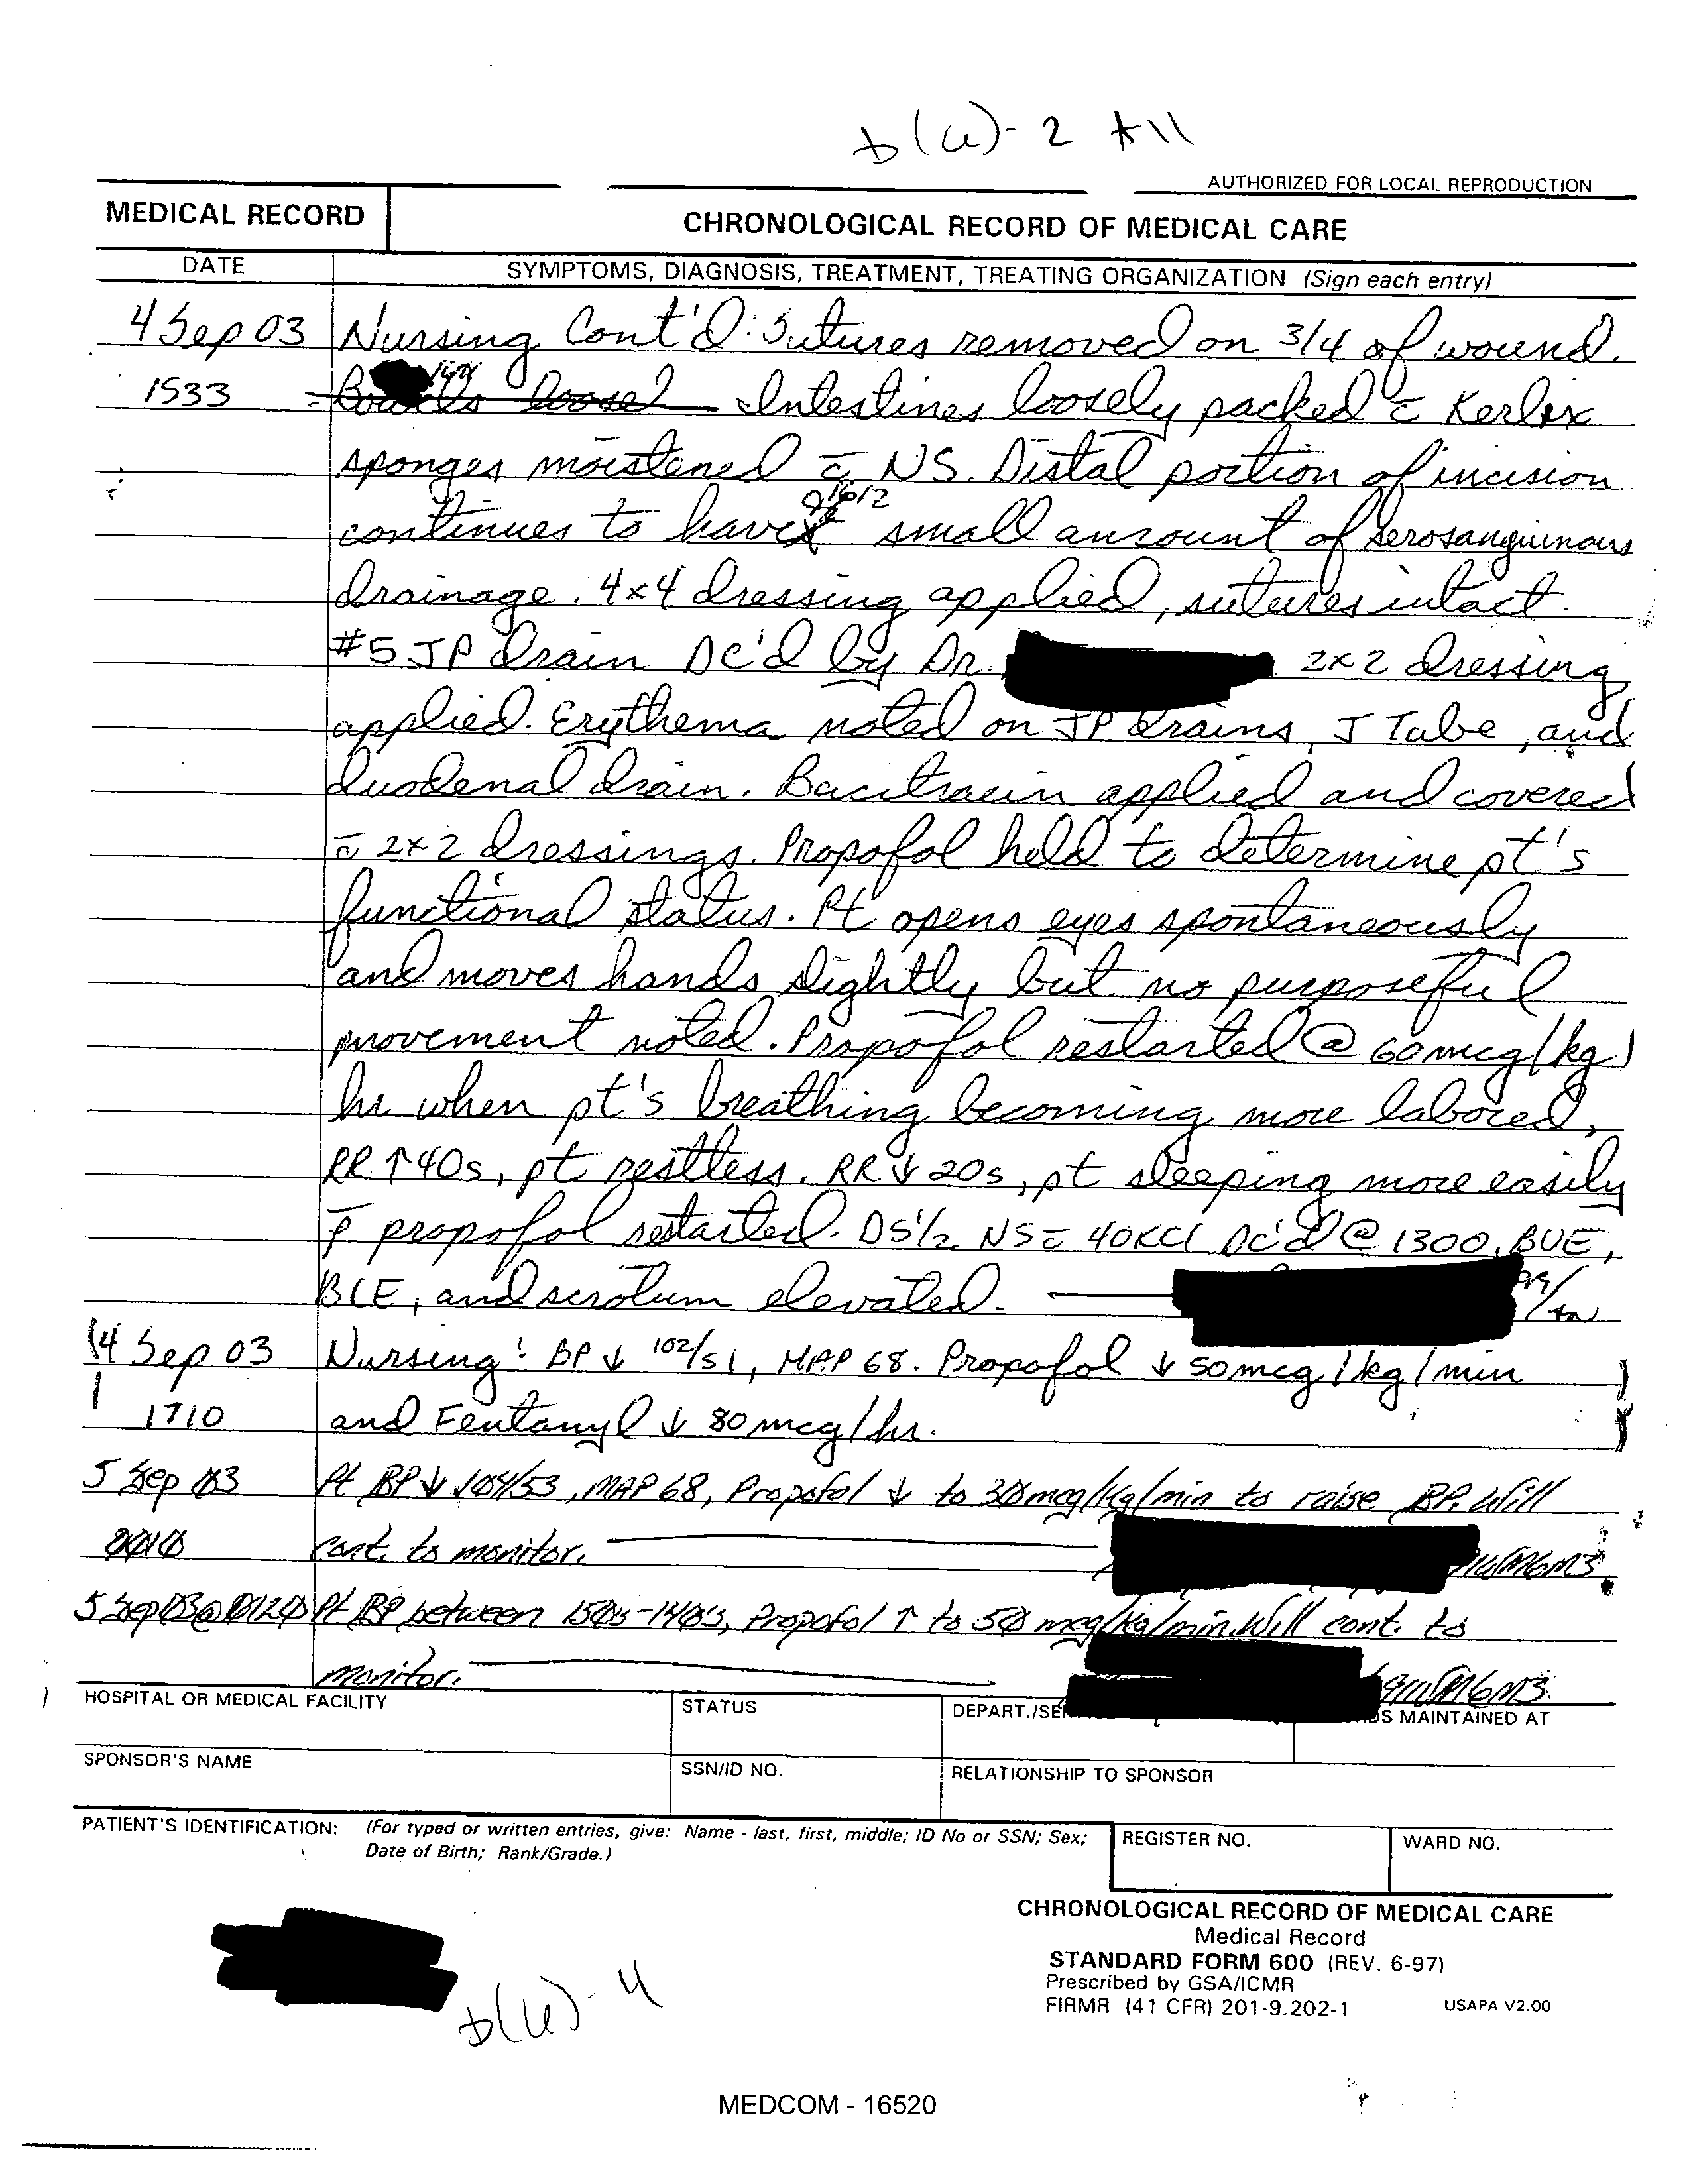 b(6)-2 All
AUTHORIZED FOR LOCAL REPRODUCTION
MEDICAL RECORD
CHRONOLOGICAL RECORD OF MEDICAL CARE
DATE
SYMPTOMS, DIAGNOSIS, TREATMENT, TREATING ORGANIZATION (Sign each entry)
4 Sep 03 Nursing Cont'd: Sutures removed on 3/4 of wound.
1533 Bowels loosel Intestines loosely packed c̄ Kerlix
sponges moistened c̄ NS. Distal portion of incision
1612
continues to have small amount of serosanguinous
drainage. 4x4 dressing applied, sutures intact.
#5 JP drain DC'd by Dr. 2x2 dressing
applied. Erythema noted on JP drains, J Tube, and
duodenal drain. Bacitracin applied and covered
c̄ 2x2 dressings. Propofol held to determine pt's
functional status. Pt opens eyes spontaneously
and moves hands slightly but no purposeful
movement noted. Propofol restarted @ 60mcg/kg/
hr when pt's breathing becoming more labored,
RR ↑ 40s, pt restless. RR ↓ 20s, pt sleeping more easily
p̄ propofol restarted. D5½ NS c̄ 40KCl DC'd @ 1300. BUE,
BLE, and scrotum elevated.
4 Sep 03 Nursing: BP ↓ 102/51, MAP 68. Propofol ↓ 50mcg/kg/min
1710 and Fentanyl ↓ 80mcg/hr.
5 Sep 03 Pt BP ↓ 104/53, MAP 68, Propofol ↓ to 30mcg/kg/min to raise BP. Will
0010 cont. to monitor.
5 Sep 03 @ 0120 Pt BP between 150s-140's, Propofol ↑ to 50 mcg/kg/min. Will cont. to
monitor.
HOSPITAL OR MEDICAL FACILITY
STATUS
DEPART./SE
S MAINTAINED AT
SPONSOR'S NAME
SSN/ID NO.
RELATIONSHIP TO SPONSOR
PATIENT'S IDENTIFICATION: (For typed or written entries, give: Name - last, first, middle; ID No or SSN; Sex;
Date of Birth; Rank/Grade.)
REGISTER NO.
WARD NO.
CHRONOLOGICAL RECORD OF MEDICAL CARE
Medical Record
STANDARD FORM 600 (REV. 6-97)
Prescribed by GSA/ICMR
FIRMR (41 CFR) 201-9.202-1
USAPA V2.00
b(6)-4
MEDCOM - 16520